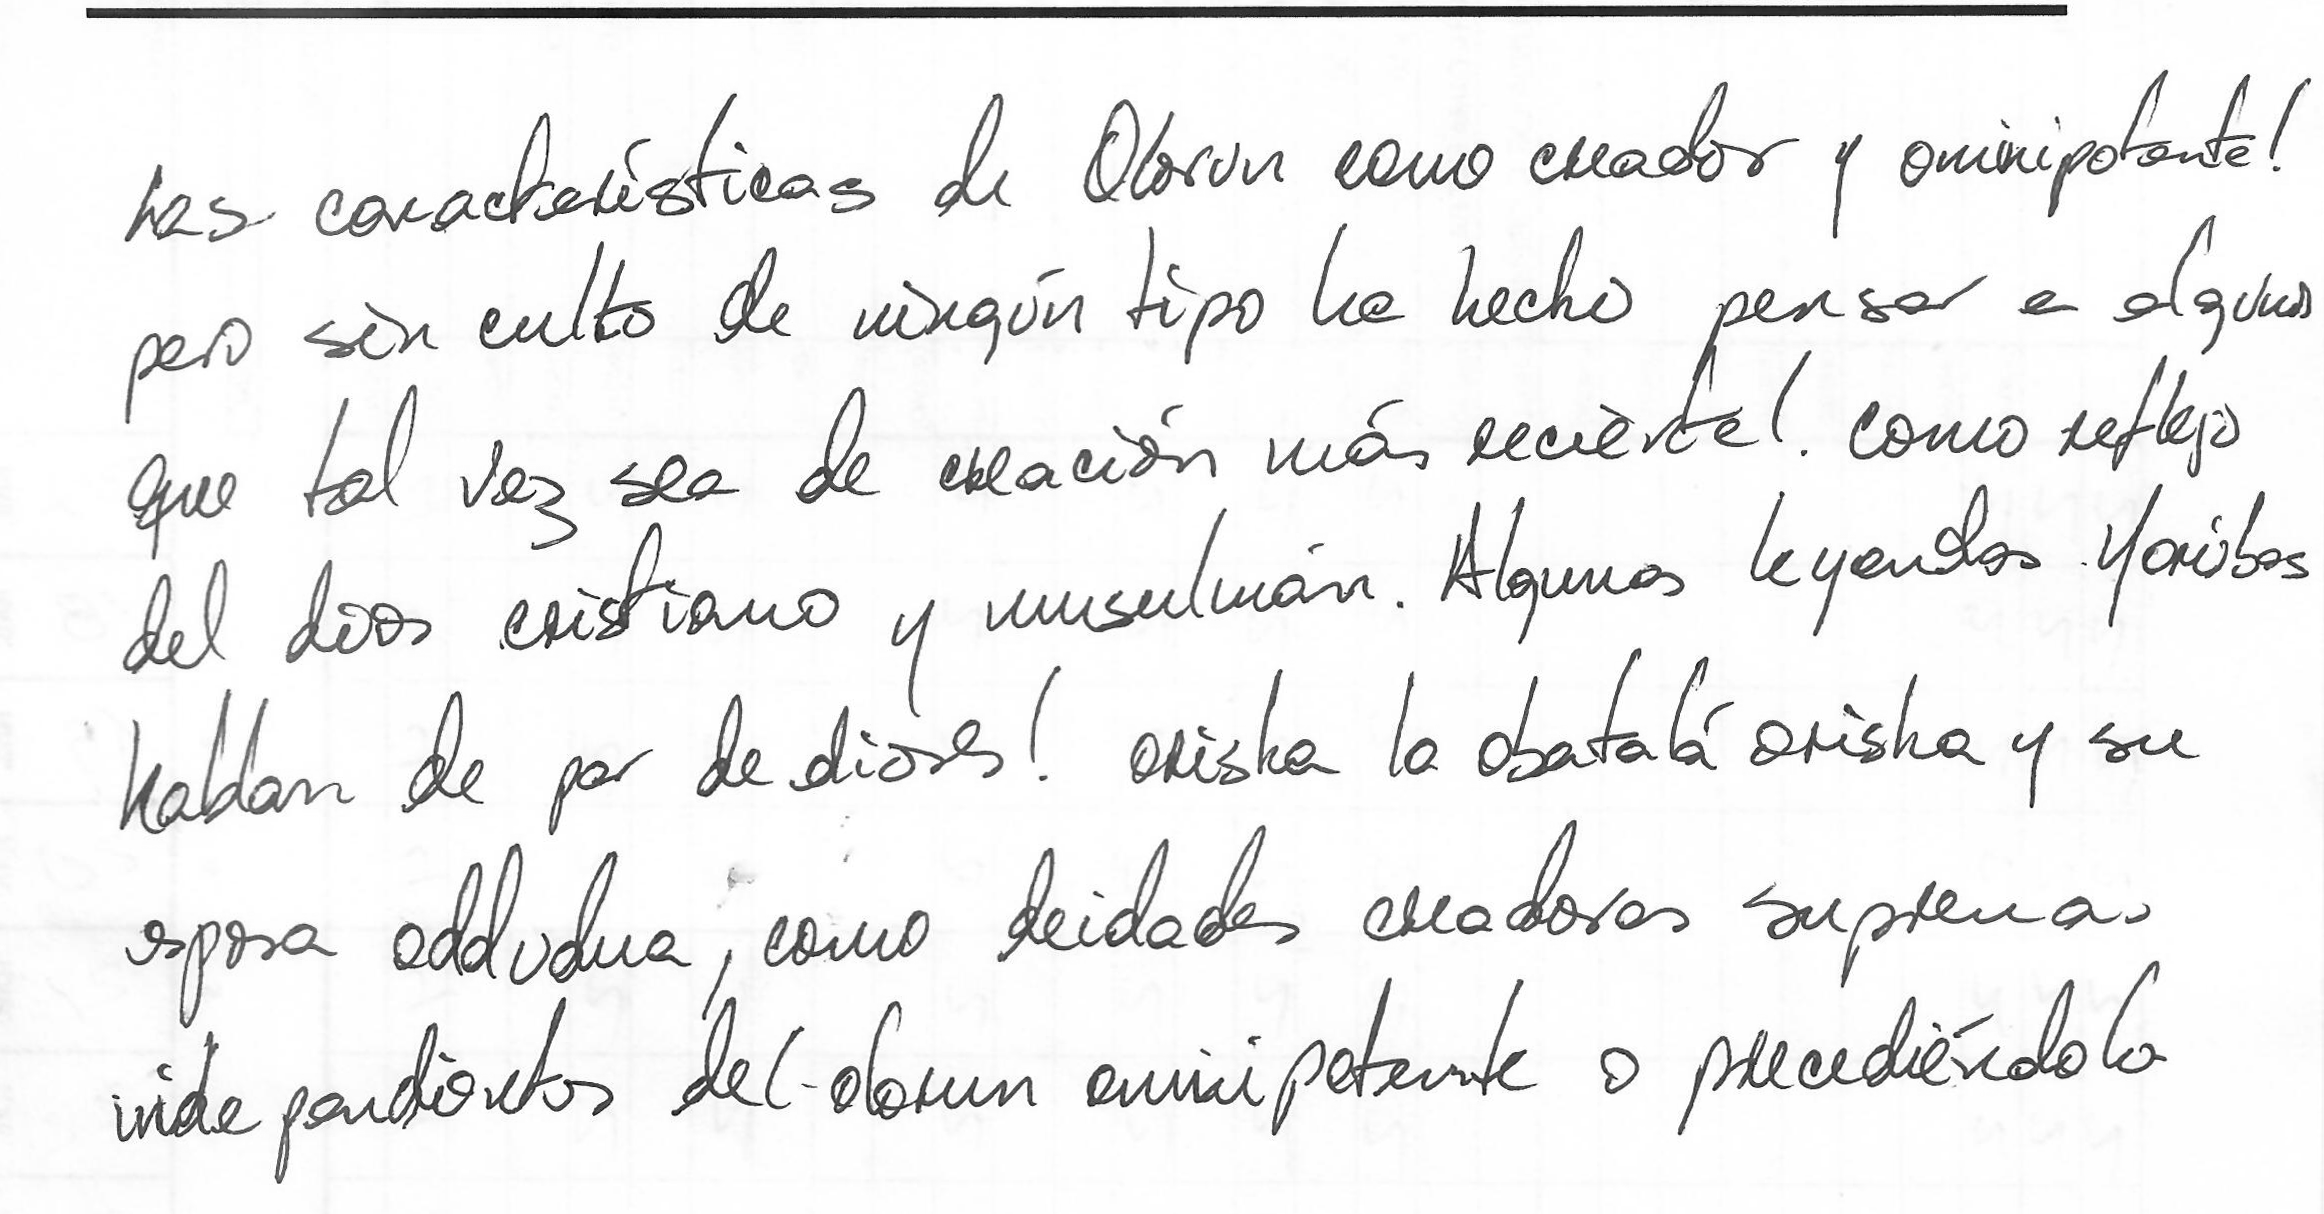 Las características de Olorun como creador y ominipotente!
pero sin culto de ningún tipo ha hecho pensar a algunos
que tal vez sea de creación más reciente! como reflejo
del dios cristiano y musulmán. Algunas leyendas Yorubas
hablan de par de dioses! orisha la obatalá orisha y su
esposa oddudua, como deidades creadoras suprema.
independientes del olorun ominipotente o precediéndolo